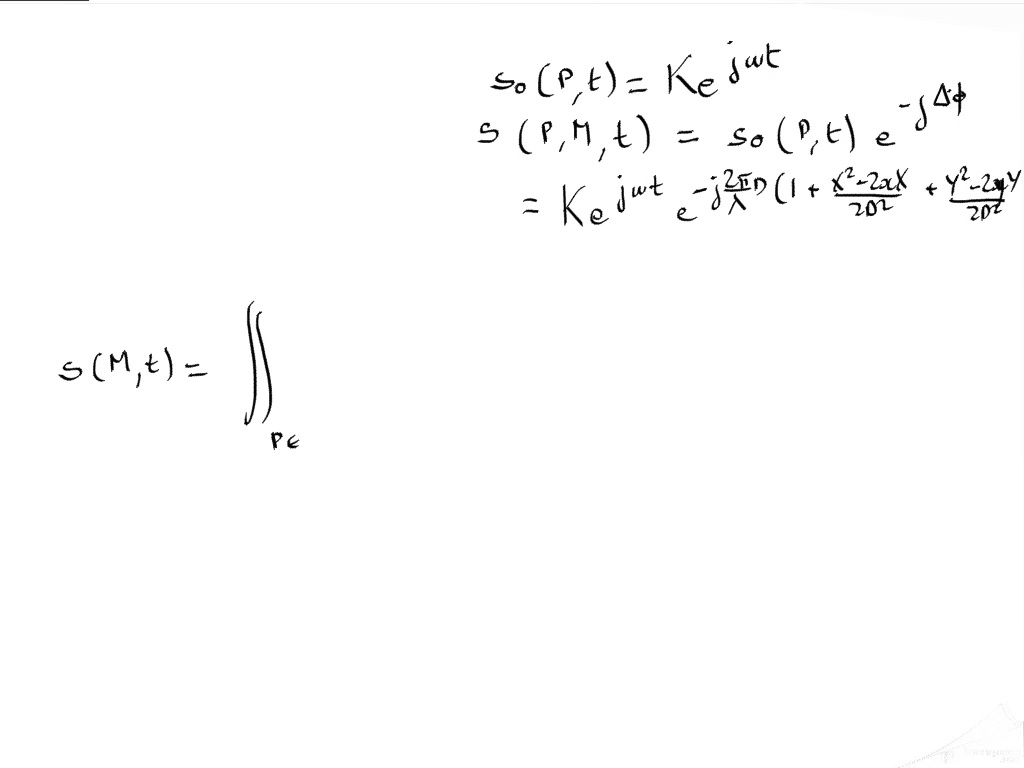 s₀(P,t) = K e^{jωt}
s(P,M,t) = s₀(P,t) e^{-jΔφ}
= K e^{jωt} e^{-j\frac{2π}{λ}D(1 + \frac{X²-2xX}{2D²} + \frac{Y²-2yY}{2D²}}
s(M,t) = ∬_{P∈}